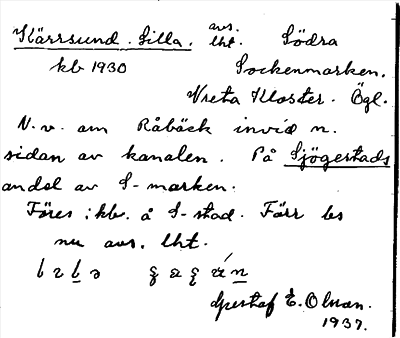 Kärrsund. Lilla. avs. lht. Södra
kb 1930 Sockenmarken.
Vreta Kloster. Ögl.
N.v. om Råbäck invid n.
sidan av kanalen. På Sjögestads
andel av S-marken.
Föres i kb. å S-stad. Förr bs
nu avs. lht.
Gustaf E. Olsson.
1937.